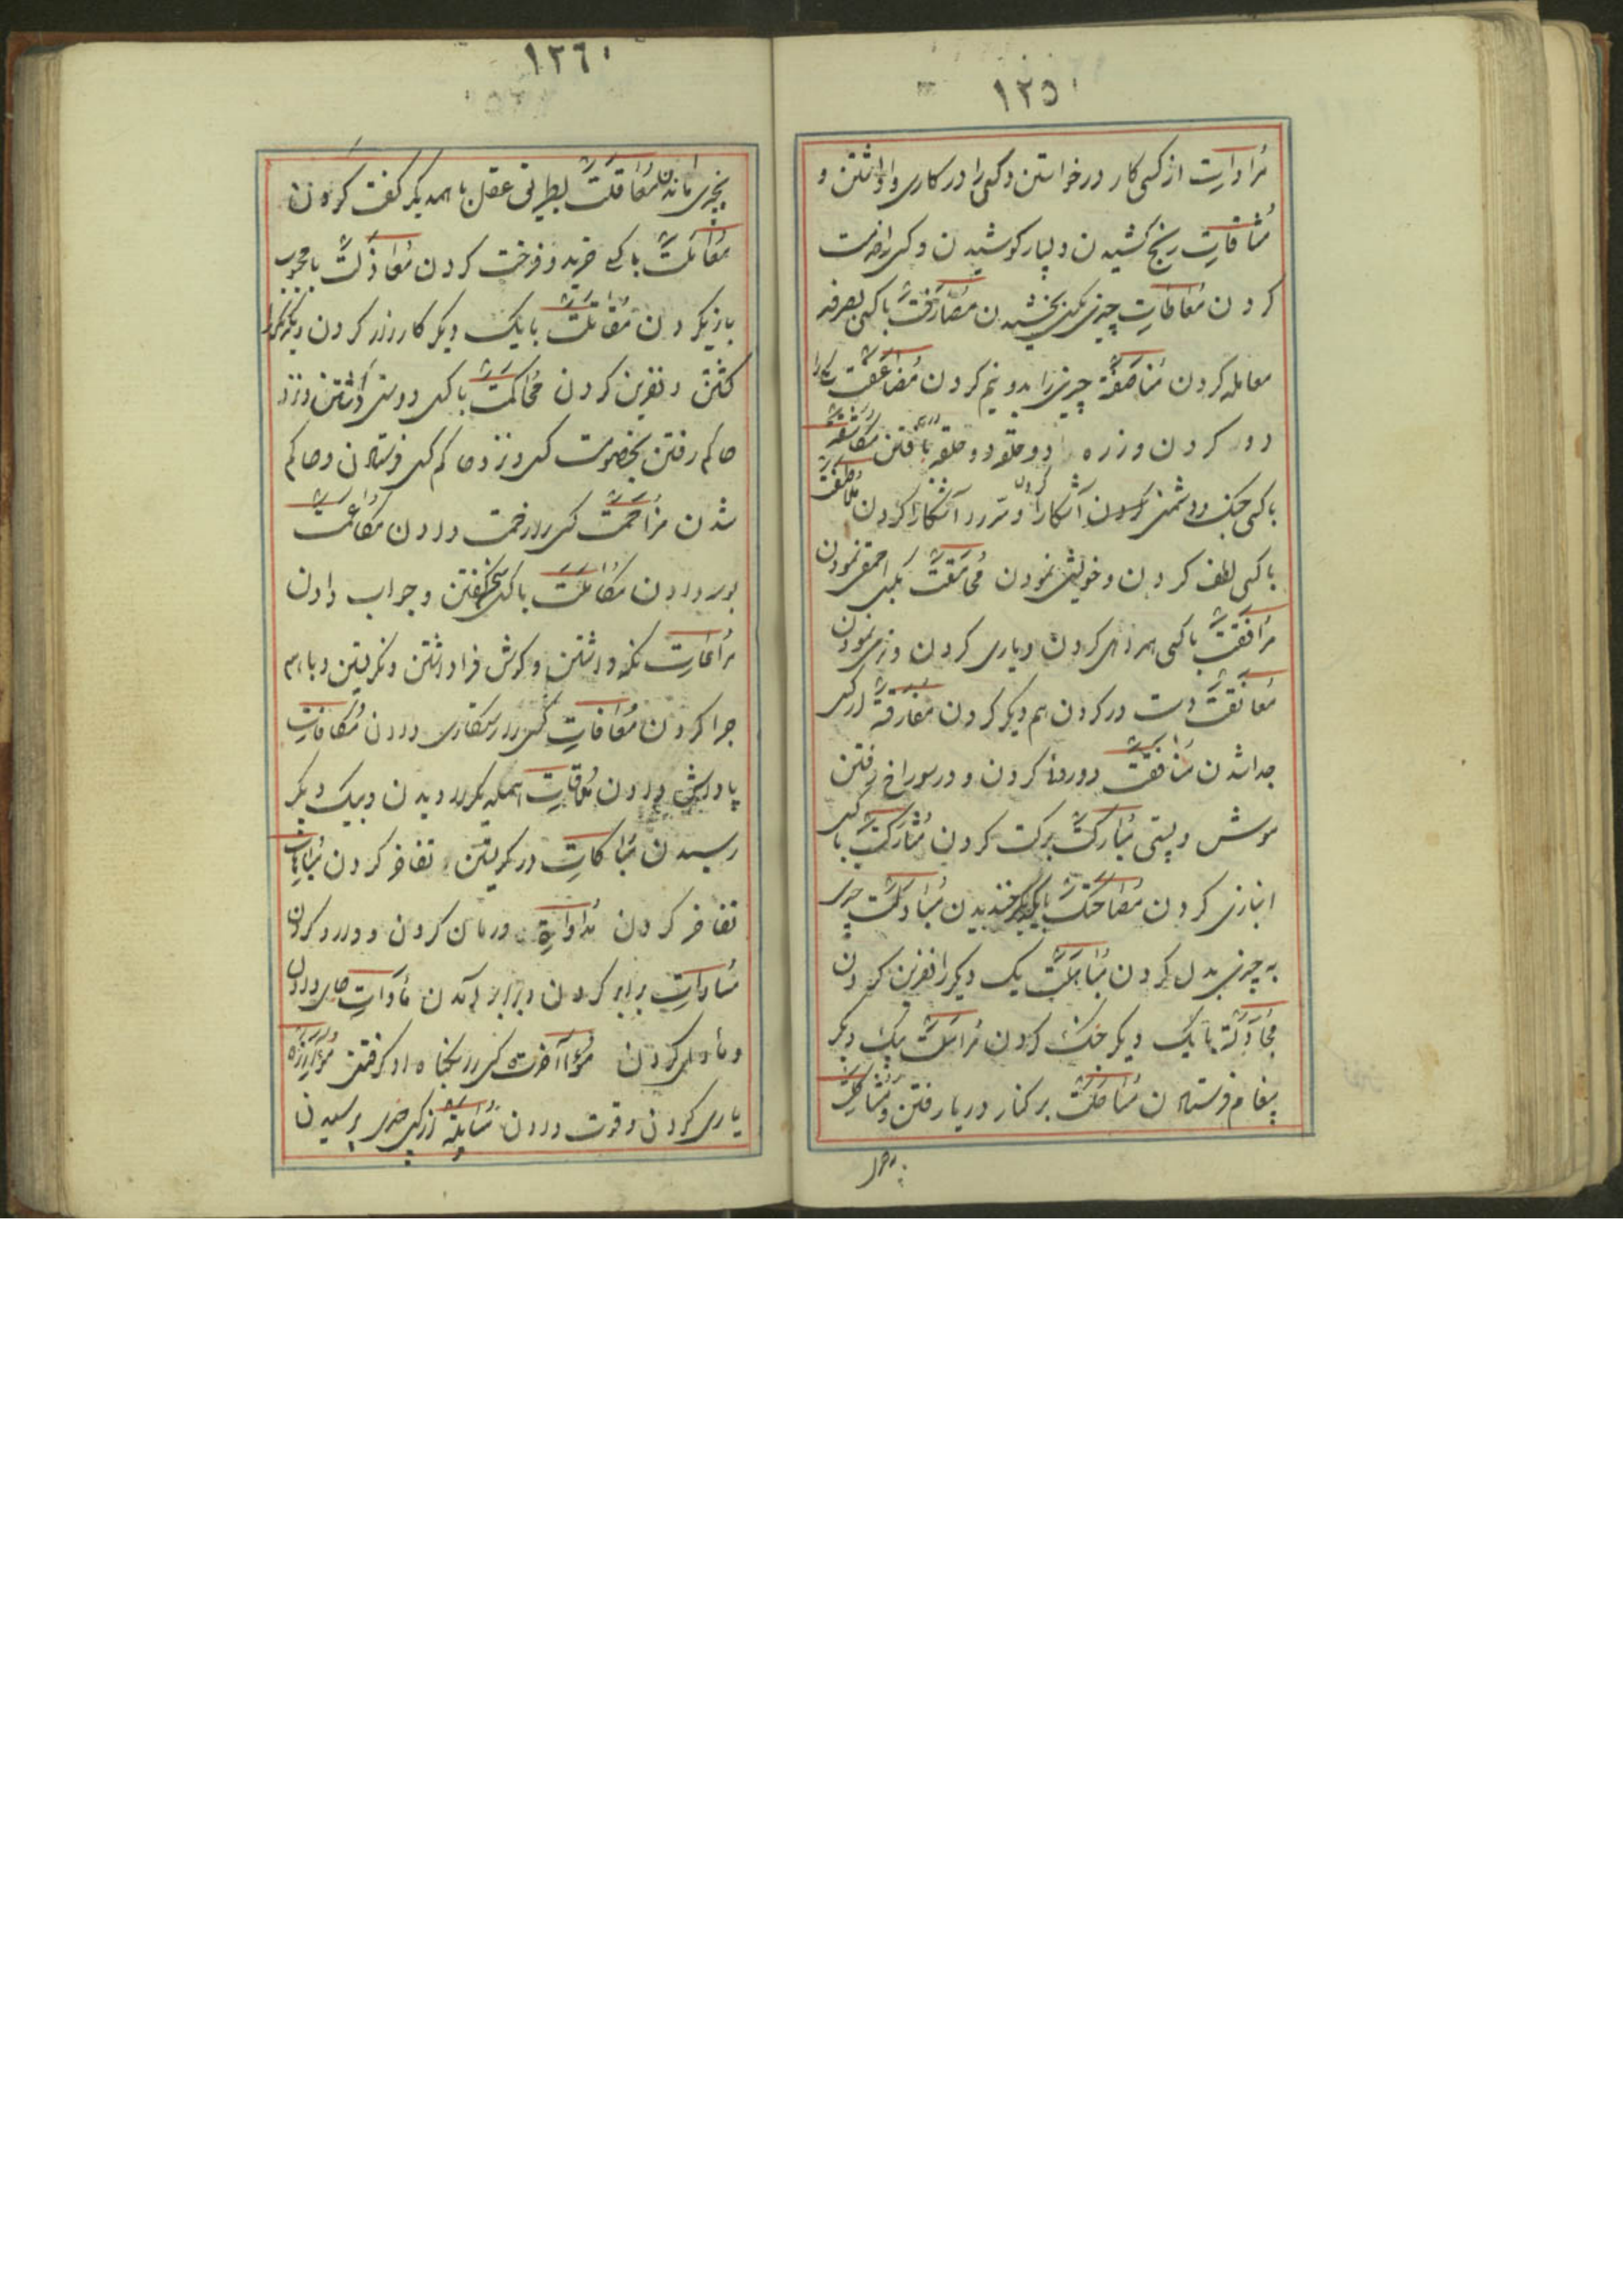 ١٢٥٠
مُراوات از کسی کار درخواستن و کسی را در کاری واداشتن و
مُشاقات رنج کشیدن و بسیار کوشیدن و کسی را خدمت
کردن مُعاطات چیزی بکسی بخشیدن مُصارَفَت با کسی بصرفه
معامله کردن مُناصَفَة چیزی را بدو نیم کردن مُضاعَفَت یکی را
دو کردن و زره را دو حلقه دو حلقه بافتن مُکاشَفَه
با کسی جنک و دشمنی کردن آشکارا و سر در آشکارا کردن مُلاطَفَت
با کسی لطف کردن و خویشی نمودن مُحامَقَت بکسی احمقی نمودن
مُرافَقَت با کسی همراهی کردن و یاری کردن و نرمی نمودن
مُعانَقَت دست در کردن هم دیکر کردن مُفارَقَة از کسی
جدا شدن مُنافَقَت دوروئی کردن و در سوراخ رفتن
موش دشتی مُبارَکَت برکت کردن مُشارَکَت با کسی
انبازی کردن مُضاحَکَت با یکدیکر خندیدن مُبادَلَت چیزی
به چیزی بدل کردن مُباهَلَت یک دیکر را نفرین کردن
مُجادَلَة با یک دیکر جنک کردن مُراسَلَت بیک دیکر
پیغام فرستادن مُساحَلَت بر کنار دریا رفتن و مُشاکَلَت
١٢٦٠
بچیزی ماندن مُعاقَلَت بطریق عقل با همدیکر کفت کردن
مُعامَلَت با کسی خرید و فروخت کردن مُغازَلَت با محبوب
بازی کردن مُقاتَلَت با یک دیکر کارزار کردن و یکدیکر را
کشتن و نفرین کردن مُحاکَمَت با کسی دوستی داشتن و نزد
حاکم رفتن بخصومت کسی و نزد حاکم کسی فرستادن و حاکم
شدن مُزاحَمَت کسی را زحمت دادن مُکاعَمَت
بوسه دادن مُکالَمَت با کسی سخن کفتن و جواب دادن
مُراعات نکه داشتن و کوش فرا داشتن و نکریستن و با هم
چرا کردن مُعافات کسی را رستکاری دادن مُکافات
پاداش دادن مُلاقات همدیکر را دیدن و بیک دیکر
رسیدن مُباکات در کریستن تفاخر کردن مُباهات
تفاخر کردن مُداواة درمان کردن و دارو کردن
مُساوات برابر کردن و برابر آمدن مأوات جای دادن
و مأوی کردن مُؤاخَذَت کسی را بکناه او کرفتن مُؤازَرَه
یاری کردن و قوت دادن مُسایَلَة از کسی چیزی پرسیدن